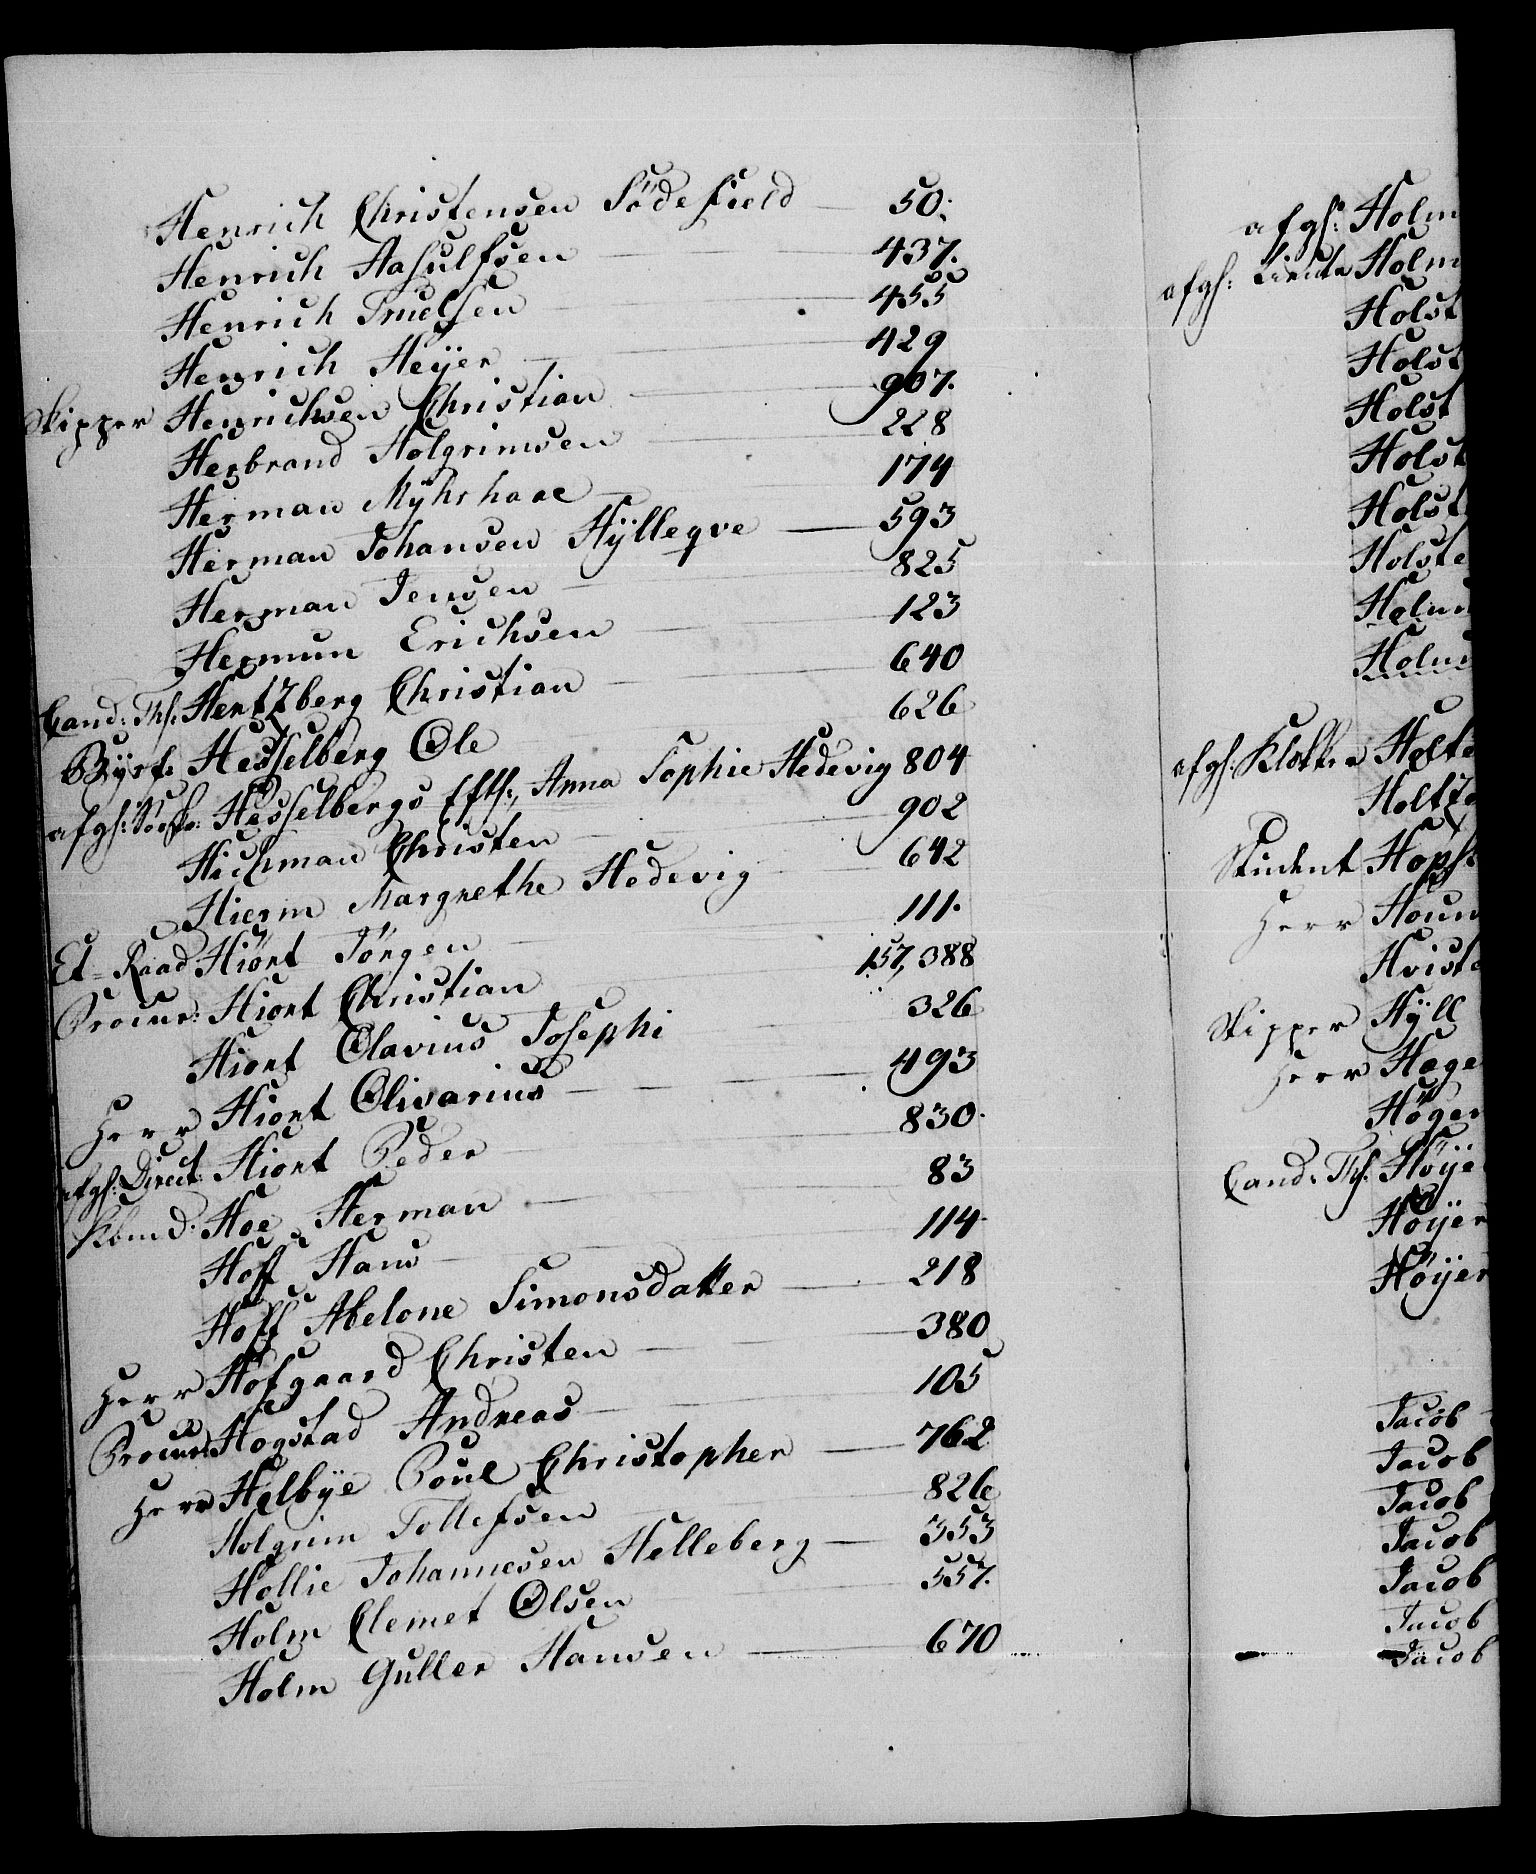 Henrich Christensen Södefield — 50.
Henrich Aasulfsen — 437.
Henrich Truelsen — 455
Henrich Heÿer — 429
Skipper Henrichsen Christian — 907.
Herbrand Holgrimsen — 228
Herman Mÿhrhaae — 174
Herman Johansen Hÿlleqve — 593
Herman Jensen — 825
Hermun Erichsen — 123
Cand: Th: Hertzberg Christian — 640
Bÿef. Hesselberg Ole — 626
afgh: Hesselbergs Efth:, Anna Sophie Hedevig 804
Hichman Christen — 902
Hierm Margrethe Hedevig — 642
Et=Raad Hiört Jörgen — 111.
Procur: Hiort Christian — 157, 388
Hiort Olavius Josephi — 326
Herr Hiort Olivarius — 493
afgh: Direct: Hiort Peder — 830.
Kbmd: Hoe Herman — 83
Hoff Hans — 114
Hoff Abelone Simonsdatter — 218
Herr Hofgaard Christen — 380
Procur: Hogstad Andreas — 105
Herr Holbÿe Poul Christopher — 762
Holgrim Tollefsen — 826
Hollie Johannesen Helleberg — 353
Holm Clemet Olsen — 557.
Holm Guller Hansen — 670
afgh: Holm
afgh: Lieutn Holm
Holst
Holst
Holst
Holst
Holst
Holste
Holm
Holm
afgh: Klokker Holte
Holtz
Student Hopst
Herr Houn
Hviste
Skipper Hÿll
Herr Hage
Höger
Cand: Th: Höÿe
Höÿer
Höÿer
Jacob
Jacob
Jacob
Jacob
Jacob
Jacob
Jacob